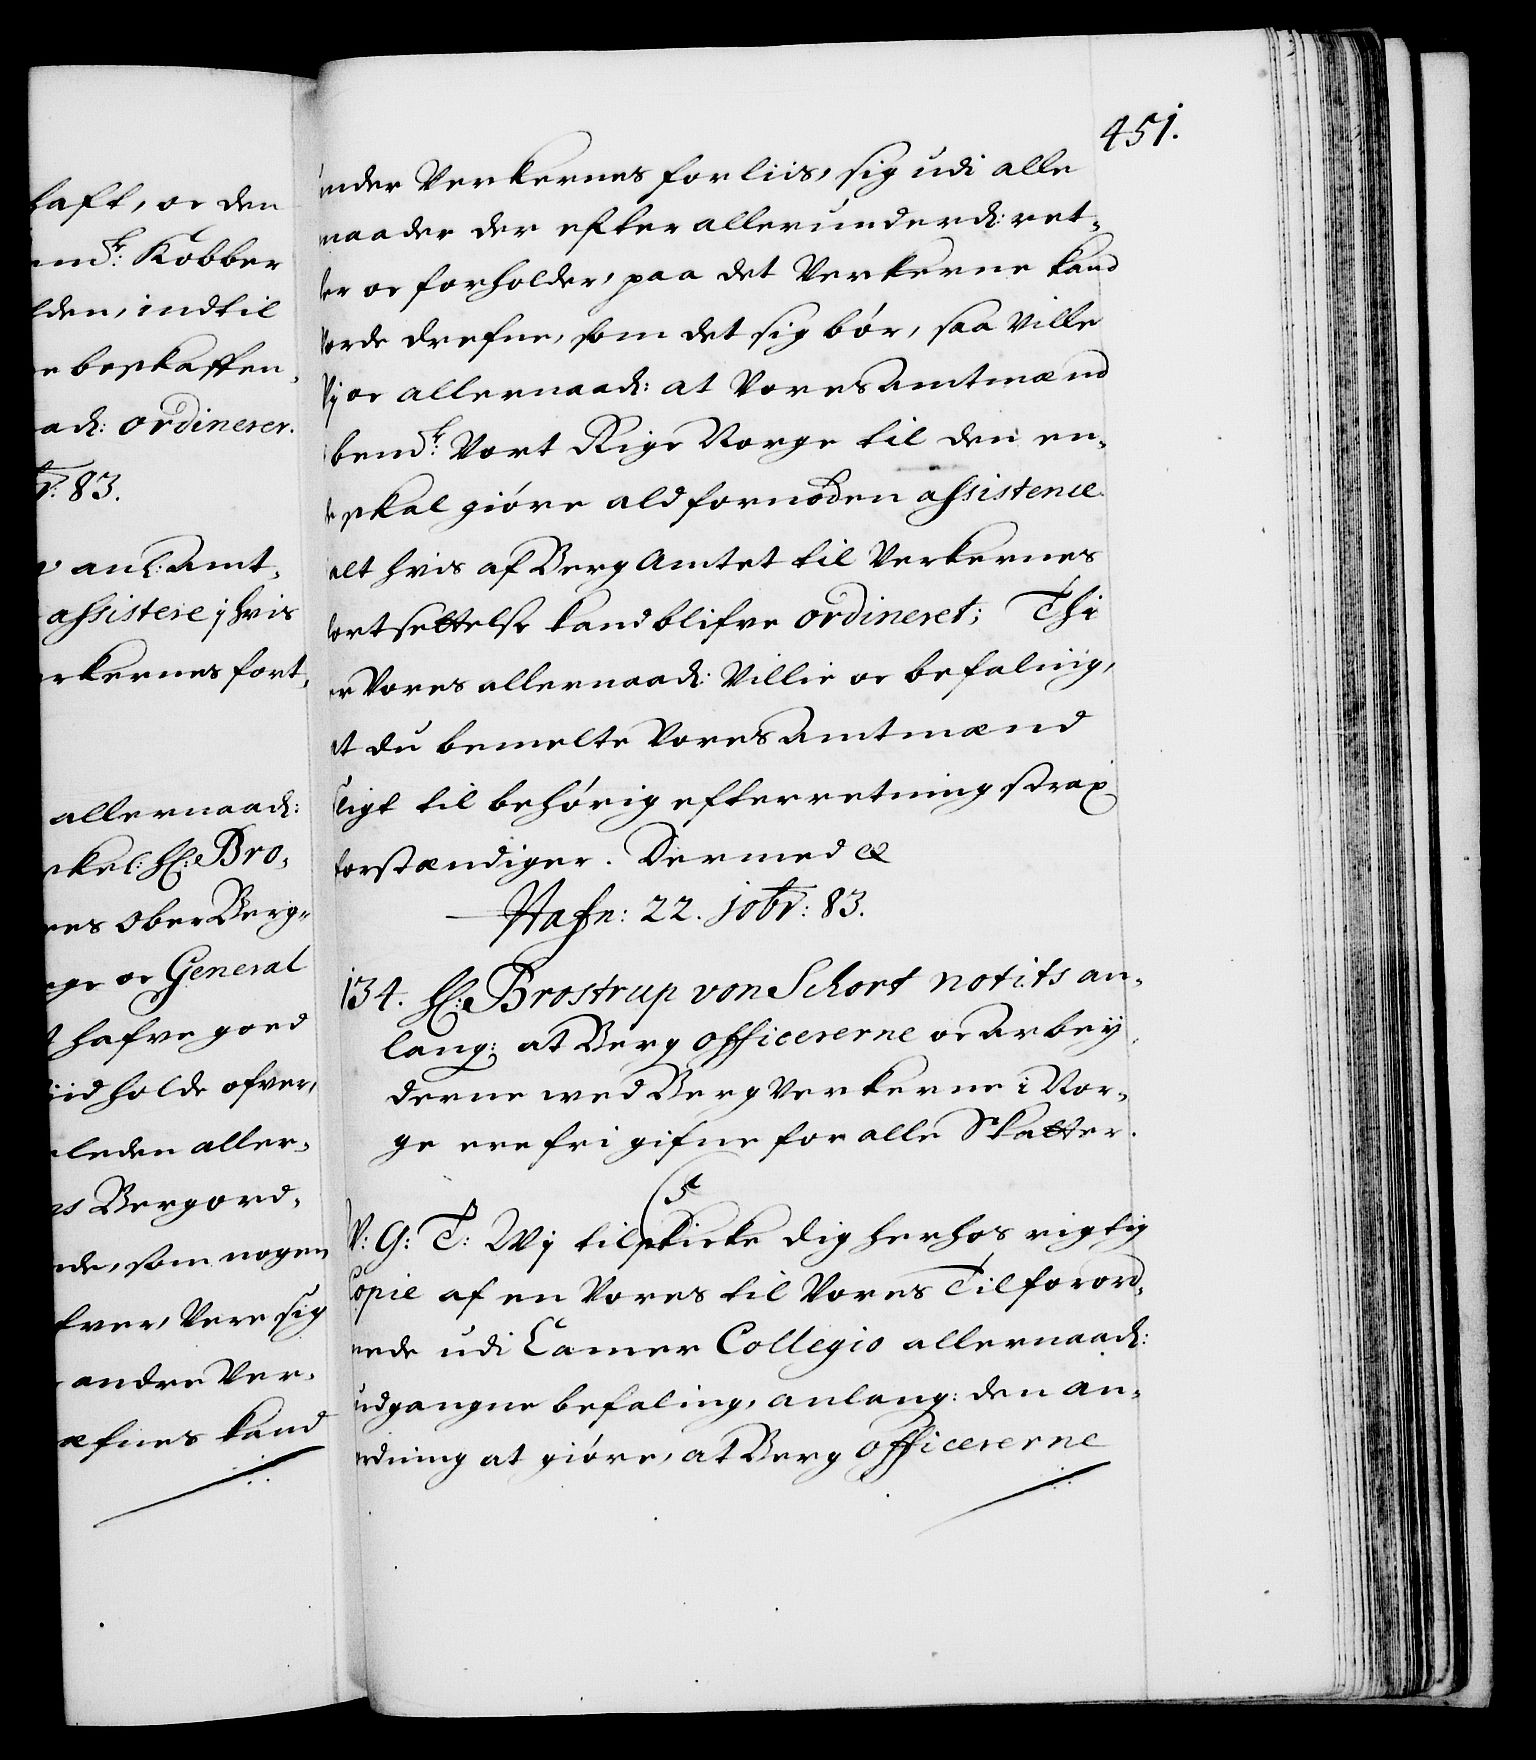 haft, oc den
md:r Kobber
lden, indtil
n beskaffen,
ad: ordinerer.
br: 83.
anl: Amt,
assistere i hvis
rkernes fort,
allernaad:
skel: H: Bro,
nes Ober Berg,
rge oc General
t hafve goed
iid holde ofver,
leden aller,
ns Bergord,
nde, som nogen
fver, Vere sig
andre Ver,
æfnes kand
451.
under Verkernes forliis, sig udi alle
maader der efter allerunderd: ret,
ter oc forholder, paa det Verkerne kand
vorde drefne, som det sig bör, saa Ville
Vj oc allernaad: at Vores Amtmænd
bemd:r Vort Rige Norge til den en,
de skal giöre ald fornöden assistence
alt hvis af Berg Amtet til Verkernes
fortsettelse kand blifve ordineret; Thi
er Vores allernaad: Villie oc befaling,
at du bemelte Vores Amtmænd
sligt til behörig efterretning strax
forstændiger. Dermed &
Hafn: 22. 10br: 83.
134. H: Brostrup von Schort notits an,
lang: at Berg officererne oc Arbey,
derne wed Berg Verkerne i Nor,
ge ere fri gifne for alle Skatter.
C5
V: G: T: Wj tilskicke dig herhos rigtig
Copie af en Vores til Vores Tilforord,
nede udi Camer Collegio allernaad:
udgangne befaling, anlang: den an,
ordning at giöre, at Berg officererne